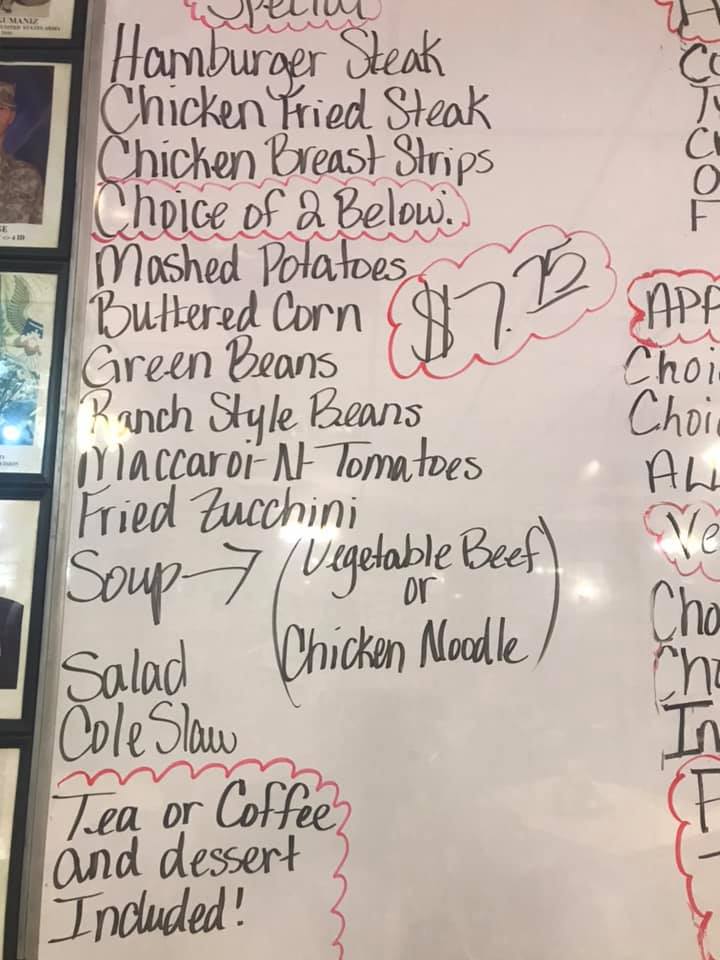 Special
Hamburger Steak
Chicken Fried Steak
Chicken Breast Strips
Choice of 2 Below:
Mashed Potatoes
$7.75
Buttered Corn
Green Beans
Ranch Style Beans
Maccaroi-N-Tomatoes
Fried Zucchini
Soup → (Vegetable Beef
or
Chicken Noodle)
Salad
Cole Slaw
Tea or Coffee
and dessert
Included!
APP
Choi
Choi
ALL
Ve
Cho
Cho
In